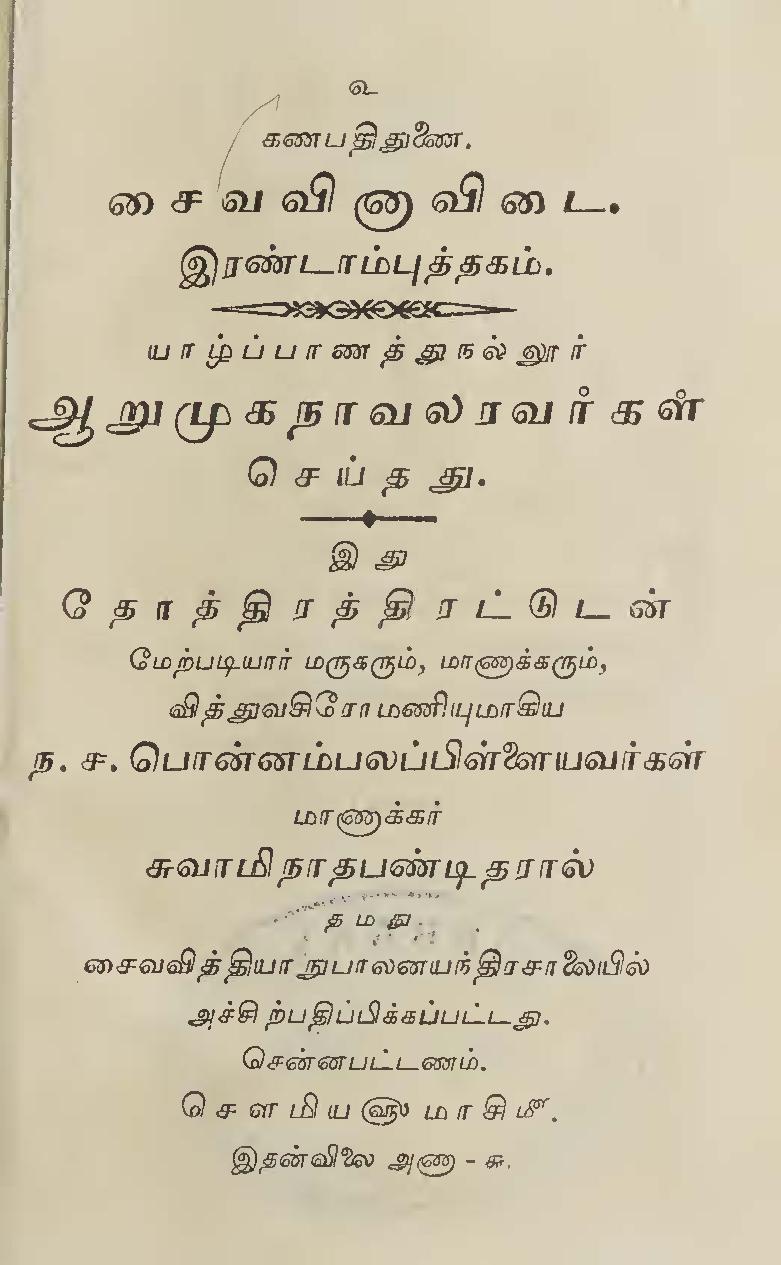 உ
கணபதிதுணை.
சைவவினாவிடை.
இரண்டாம்புத்தகம்.
யாழ்ப்பாணத்துநல்லூர்
ஆறுமுகநாவலரவர்கள்
செய்தது.
இது
தோத்திரத்திரட்டுடன்
மேற்படியார் மருகரும், மாணாக்கரும்,
வித்துவசிரோமணியுமாகிய
ந. ச. பொன்னம்பலப்பிள்ளையவர்கள்
மாணாக்கர்
சுவாமிநாதபண்டிதரால்
தமது
சைவவித்தியாநுபாலனயந்திரசாலையில்
அச்சிற்பதிப்பிக்கப்பட்டது.
சென்னபட்டணம்.
சௌமிய௵ மாசி௴.
இதன்விலை அணா - சு.